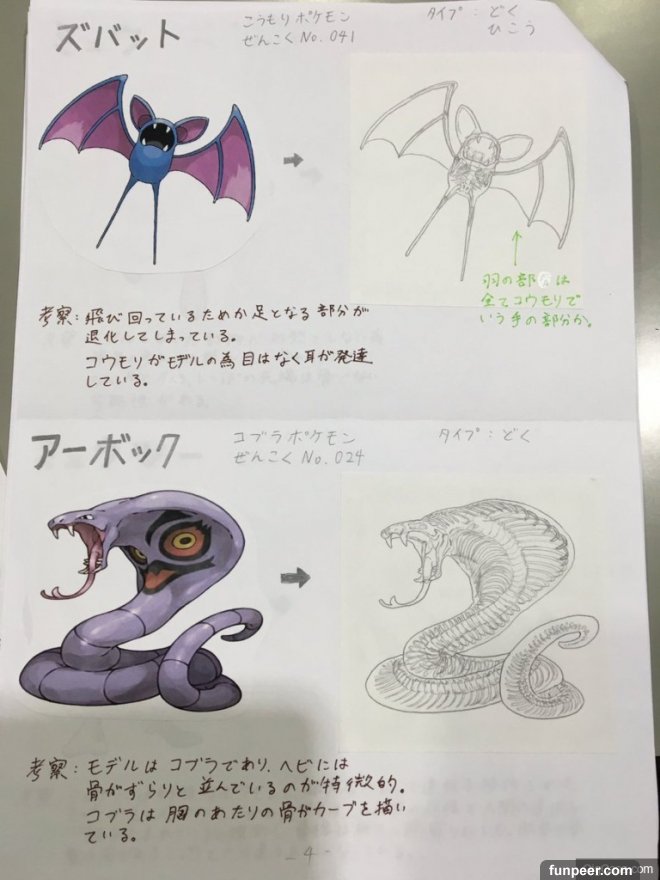 ズバット
こうもりポケモン
ぜんこくNo.041
タイプ：どく
ひこう
羽の部分は
全てコウモリで
いう手の部分か。
考察：飛び回っているためか足となる部分が
退化してしまっている。
コウモリがモデルの為目はなく耳が発達
している。
アーボック
コブラポケモン
ぜんこくNo.024
タイプ：どく
考察：モデルはコブラであり、ヘビには
骨がずらりと並んでいるのが特徴的。
コブラは胸のあたりの骨がカーブを描い
ている。
-4-
funpeer.com